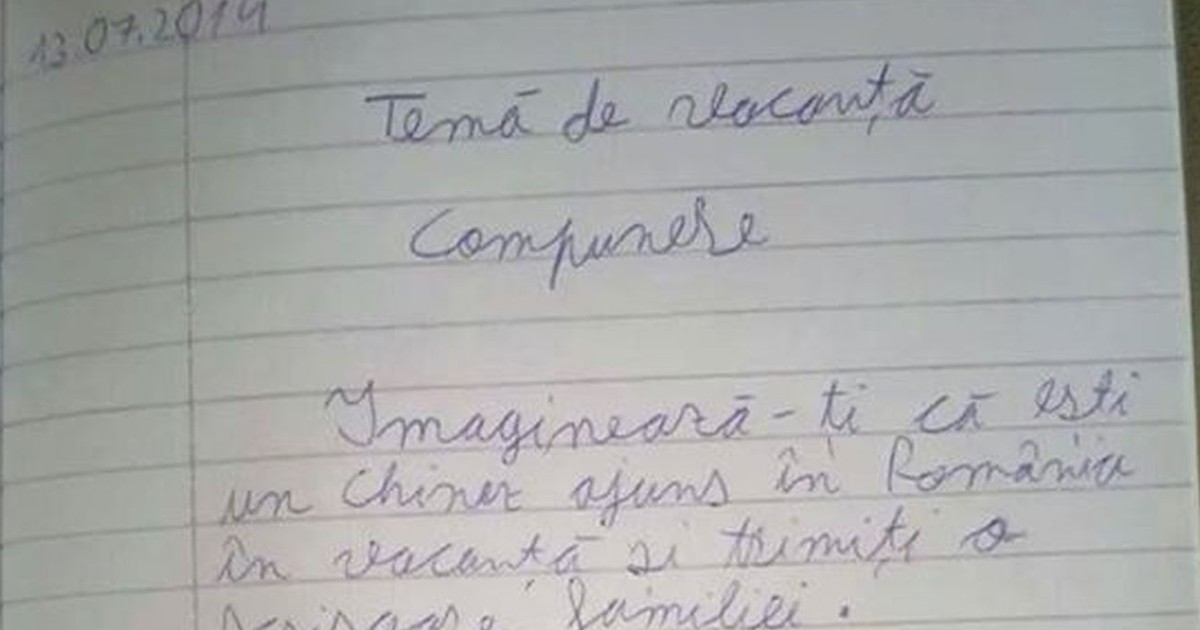 13.07.2014
Temă de vacanță
Compunere
Imaginează-ti că esti
un chinez ajuns în România
în vacantă si trimiți o
scrisoare familiei.